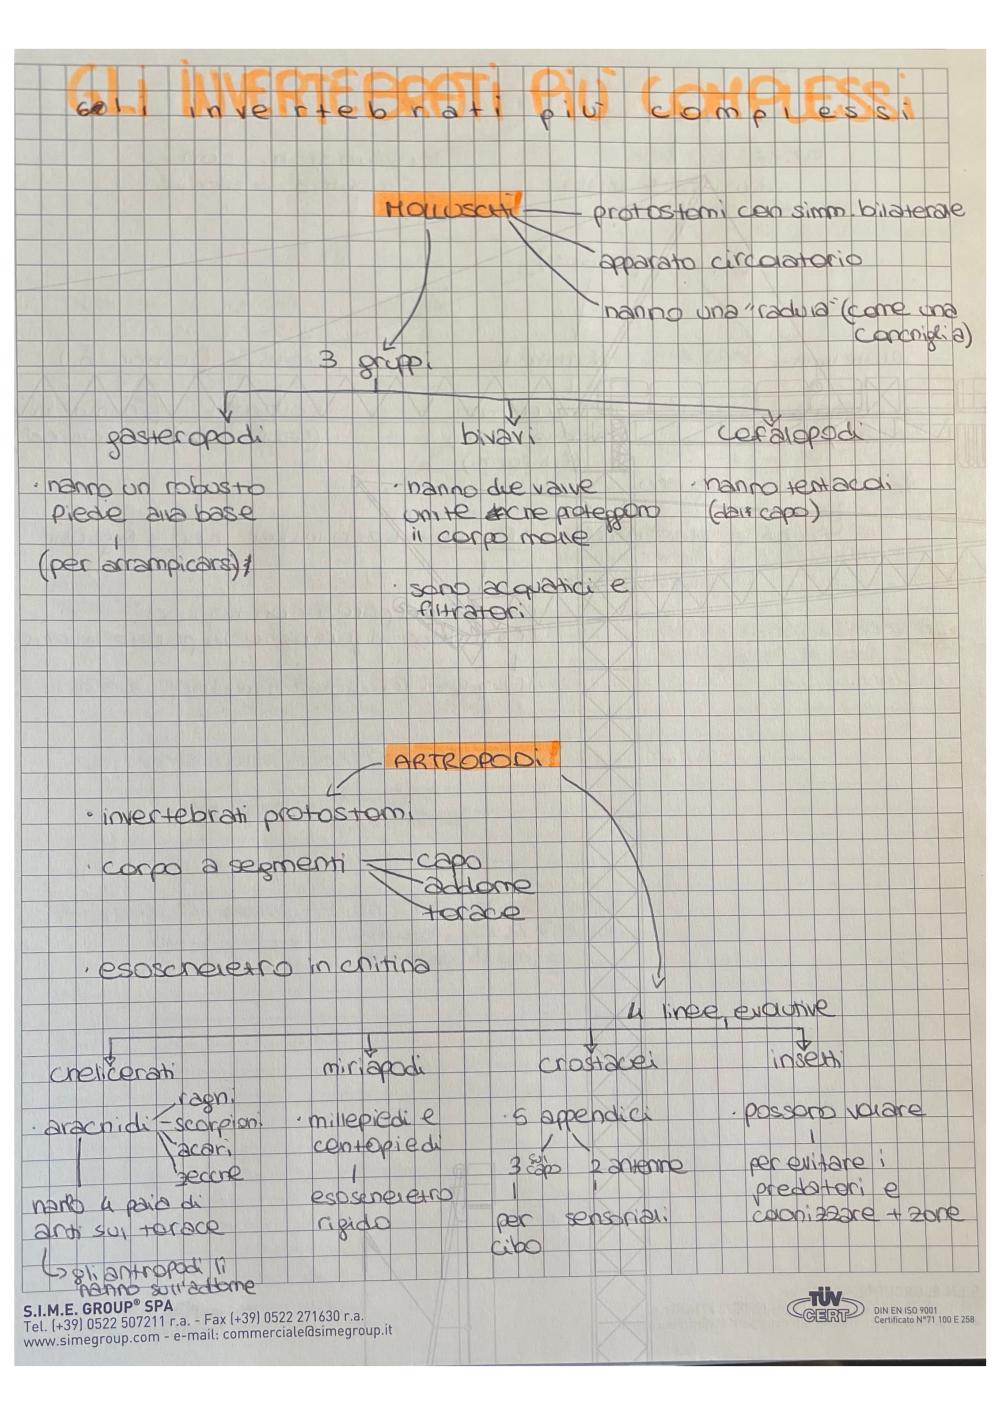 GLI INVERTEBRATI PIÙ COMPLESSI
gli invertebrati più complessi
MOLLUSCHI
protostomi con simm. bilaterale
apparato circolatorio
hanno una "radula" (come una
conchiglia)
3 gruppi
gasteropodi
bivalvi
cefalopodi
· hanno un robusto
piede alla base
(per arrampicarsi)
· hanno due valve
unite che proteggono
il corpo molle
· sono acquatici e
filtratori
· hanno tentacoli
(dal capo)
ARTROPODI
· invertebrati protostomi
· corpo a segmenti
capo
addome
torace
· esoscheletro in chitina
4 linee evolutive
chelicerati
miriapodi
crostacei
insetti
· arachidi
ragni
scorpioni
acari
zecche
hanno 4 paia di
arti sul torace
gli antropodi li
hanno sull'addome
· millepiedi e
centopiedi
esoscheletro
rigido
· 5 appendici
3 sul capo
2 antenne
per
cibo
sensoriali
· possono volare
per evitare i
predatori e
colonizzare + zone
S.I.M.E. GROUP® SPA
Tel. (+39) 0522 507211 r.a. - Fax (+39) 0522 271630 r.a.
www.simegroup.com - e-mail: commerciale@simegroup.it
TÜV
CERT
DIN EN ISO 9001
Certificato N°71 100 E 258